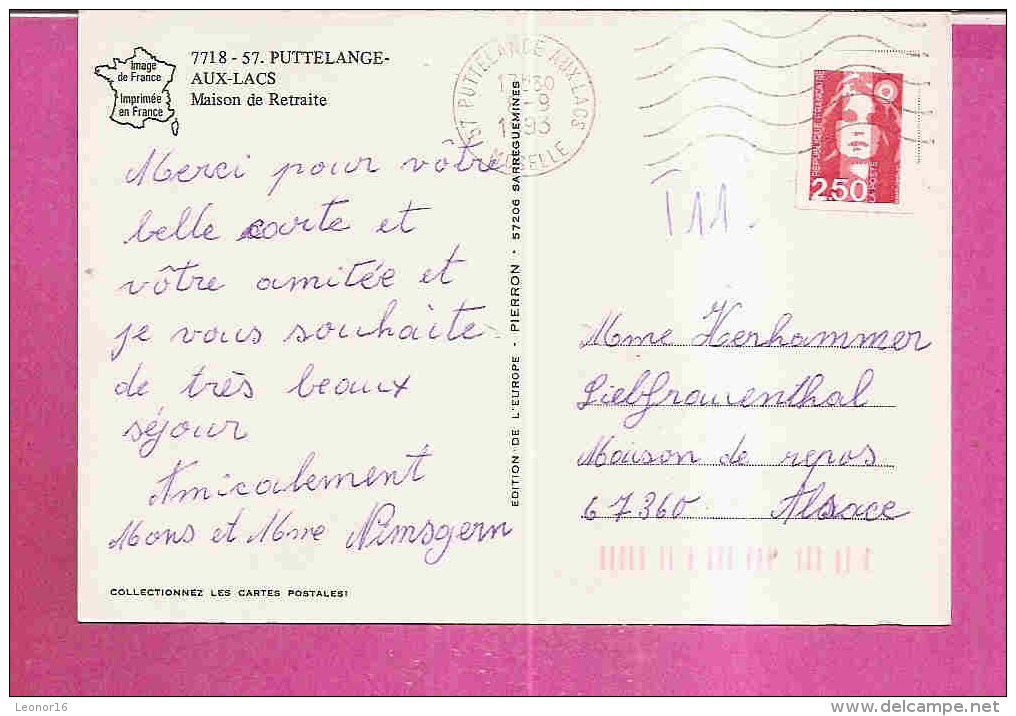 Image
de France
Imprimée
en France
7718 - 57. PUTTELANGE-
AUX-LACS
Maison de Retraite
57 PUTTELANGE-AUX-LACS
17H30
-9
1993
MOSELLE
REPUBLIQUE FRANÇAISE
2,50
LA POSTE
T11.
Merci pour vôtre
belle carte et
vôtre amitée et
je vous souhaite
de très beaux
séjour
Amicalement
Mons et Mme Nimsgern
COLLECTIONNEZ LES CARTES POSTALES!
EDITION DE L'EUROPE - PIERRON - 57206 SARREGUEMINES
Mme Herhammer
Liebfrauenthal
Maison de repos
67360 Alsace
Leonor16
delcampe.net